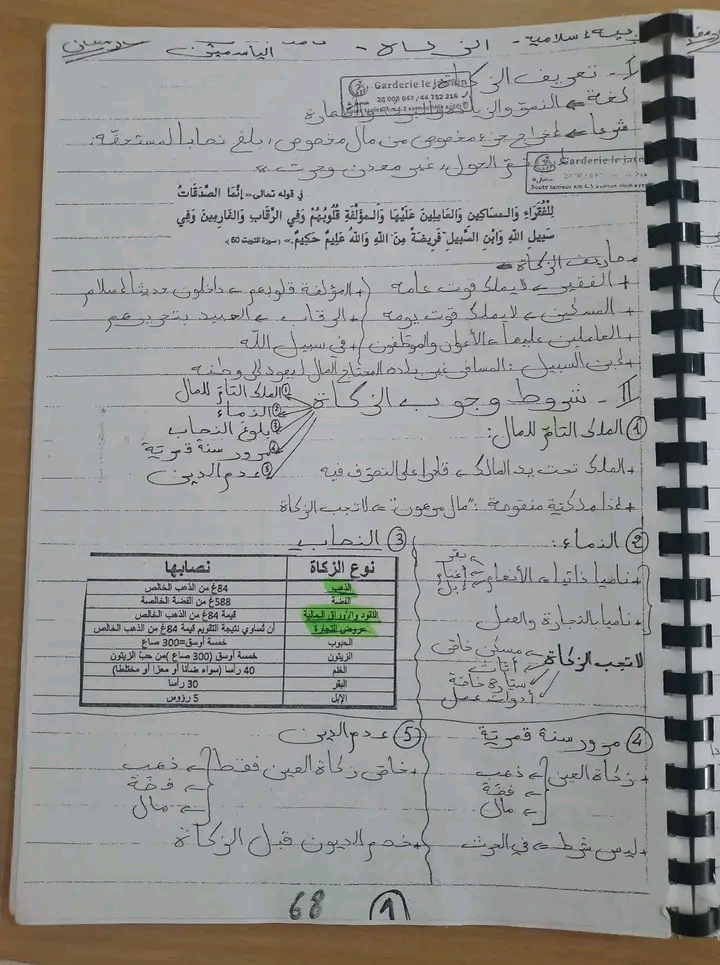 تربية إسلامية - الزكاة - الياسمين
I - تعريف الزكاة
Garderie le jasmin
28 008 047 / 44 752 216
لغة ← النمو والزيادة
شرعا ← إخراج جزء مخصوص من مال مخصوص، بلغ نصابا لمستحقه،
الحول، غير معدن وحرث.»
Garderie le jasmin
Route tanieur km 6.5
في قوله تعالى:« إِنَّمَا الصَّدَقَاتُ
لِلْفُقَرَاءِ وَالْمَسَاكِينِ وَالْعَامِلِينَ عَلَيْهَا وَالْمُؤَلَّفَةِ قُلُوبُهُمْ وَفِي الرِّقَابِ وَالْغَارِمِينَ وَفِي
سَبِيلِ اللَّهِ وَابْنِ السَّبِيلِ فَرِيضَةً مِنَ اللَّهِ وَاللَّهُ عَلِيمٌ حَكِيمٌ.» (سورة التوبة 60).
مصاريف الزكاة
+ الفقير ← لا يملك قوت عامه
+ المؤلفة قلوبهم ← داخلون حديثا للإسلام
+ المسكين ← لا يملك قوت يومه
+ الرقاب ← العبيد بتحريرهم
+ العاملين عليها ← الأعوان والموظفون
+ في سبيل الله
+ ابن السبيل: المسافر غير بلده المحتاج لمال ليعود إلى وطنه
II - شروط وجوب الزكاة
① الملك التام للمال
② النماء
③ بلوغ النصاب
④ مرور سنة قمرية
⑤ عدم الدين
① الملك التام للمال:
+ الملك تحت يد المالك ← قادرا على التصرف فيه
+ إذا ملكية منقوصة: "مال مرهون" ← لا تجب الزكاة
② النماء:
+ ناميا ذاتيا ← الأنعام
← بقر
← أغنام
← إبل
+ ناميا بالتجارة والعمل
لا تجب الزكاة
← مسكن خاص
← أثاث
سيارة خاصة
أدوات عمل
③ النصاب
نوع الزكاة نصابها
الذهب 84غ من الذهب الخالص
الفضة 588غ من الفضة الخالصة
النقود والأوراق المالية قيمة 84غ من الذهب الخالص
عروض التجارة أن تساوي نتيجة التقويم قيمة 84غ من الذهب الخالص
الحبوب خمسة أوسق=300 صاع
الزيتون خمسة أوسق (300 صاع )من حب الزيتون
الغنم 40 رأسا (سواء ضأنا أو معزا أو مختلطا)
البقر 30 رأسا
الإبل 5 رؤوس
④ مرور سنة قمرية
+ زكاة العين
← ذهب
← فضة
← مال
+ ليس شرط ← في الحرث
⑤ عدم الدين
+ خاص زكاة العين فقط
← ذهب
← فضة
← مال
+ خصم الديون قبل الزكاة
68
1